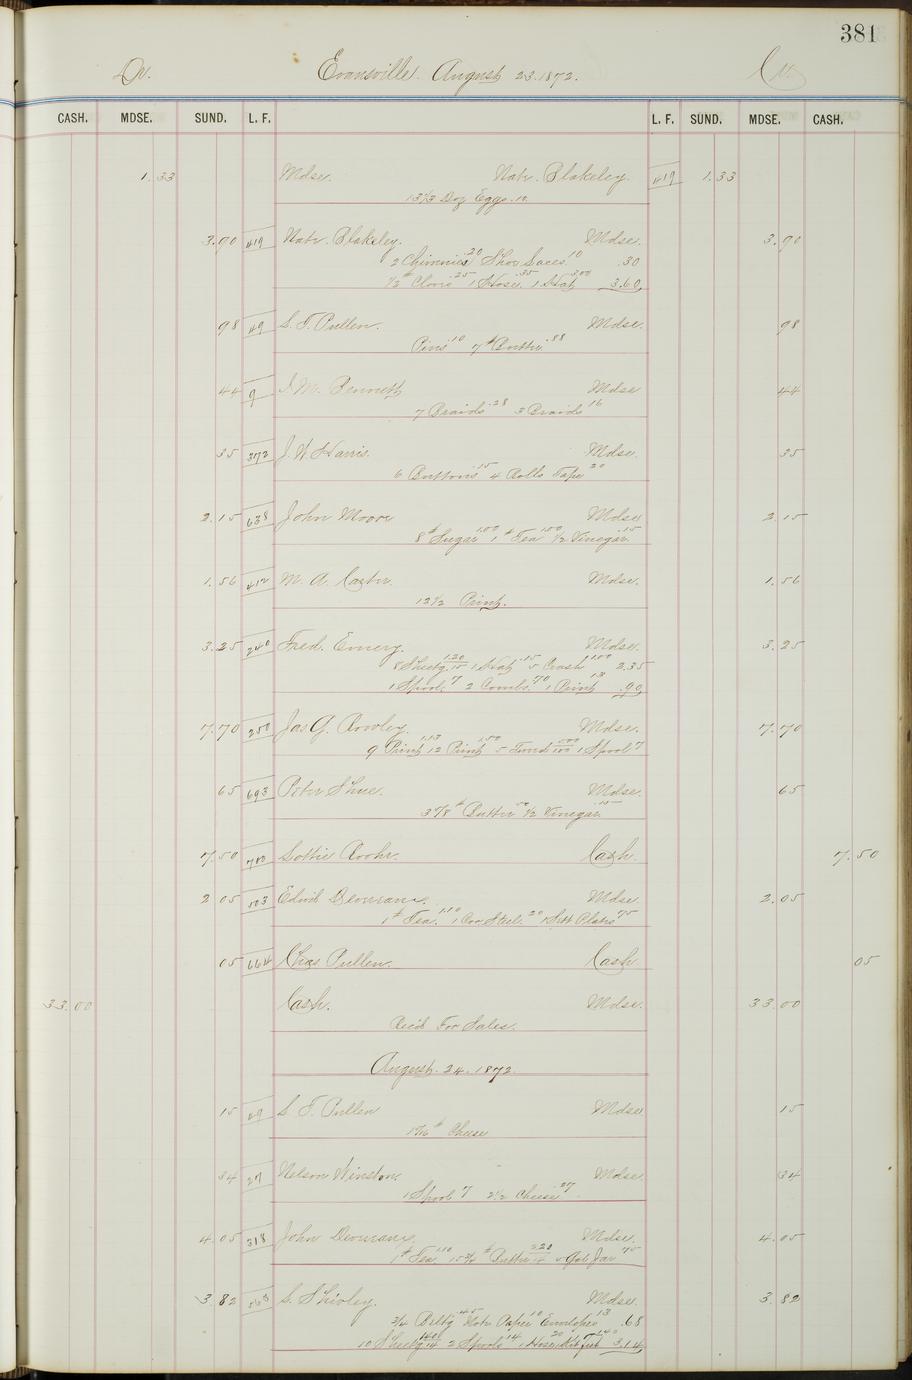 381
Dr. Evansville. August 23. 1872. Cr.
CASH. MDSE. SUND. L. F. L. F. SUND. MDSE. CASH.
1.33 Mdse. Natr. Blakeley. 419 1.33
13 1/3 Doz Eggs. 10
3.90 419 Natr. Blakeley. Mdse. 3.90
2 Chimnies 20 Shoe Laces 10 .30
1/2 # Clove 25 1 Hose 35 1 Hat 3.00 3.60
98 49 S. T. Pullen. Mdse. 98
Pins 10 7 # Butter .88
44 9 J. M. Bennett Mdse 44
7 Braids .28 3 Braids 16
35 372 J. W. Harris. Mdse. 35
6 Buttons 15 4 Rolls Tape 20
2.15 638 John Moore Mdse 2.15
8 # Sugar 1.00 1 # Tea 1.00 1/2 Vinegar .15
1.56 412 M. A. Carter. Mdse. 1.56
12 1/2 Print.
3.25 240 Fred. Emery. Mdse. 3.25
8 Sheetg. 15 1.20 1 Hat .15 5 Crash 1.00 2.35
1 Spool 7 2 Combs 70 1 Print 13 .90
7.70 250 Jas. G. Rowley. Mdse. 7.70
9 Print 1.13 12 Print 1.50 5 100 5.00 1 Spool 7
65 693 Peter Shue. Mdse. 65
3 7/8 # Butter 50 1/2 Vinegar 15
7.50 700 Lottie Rooks. Cash. 7.50
2 05 103 Edwd Devorman. Mdse. 2.05
1 # Tea. 1.10 1 20 1 Sett Plates 75
05 664 Chas. Pullen. Cash. 05
33.00 Cash. Mdse. 33.00
Recd For Sales.
August. 24. 1872.
15 49 S. T. Pullen Mdse 15
1 # Cheese
34 27 Nelson Winston. Mdse. 34
1 Spool 7 2 1/2 Cheese 27
4.05 318 John Devorman. Mdse. 4.05
1 # Tea. 1.10 15 3/4 # Butter 14 2.20 5 Gal Jar 75
3.82 568 S. Shivley. Mdse. 3.82
3/4 Beltg .45 Note Paper 10 Envelopes 13 .68
10 Sheetg 14 1.40 2 Spools 14 1 Hose 20 3.14